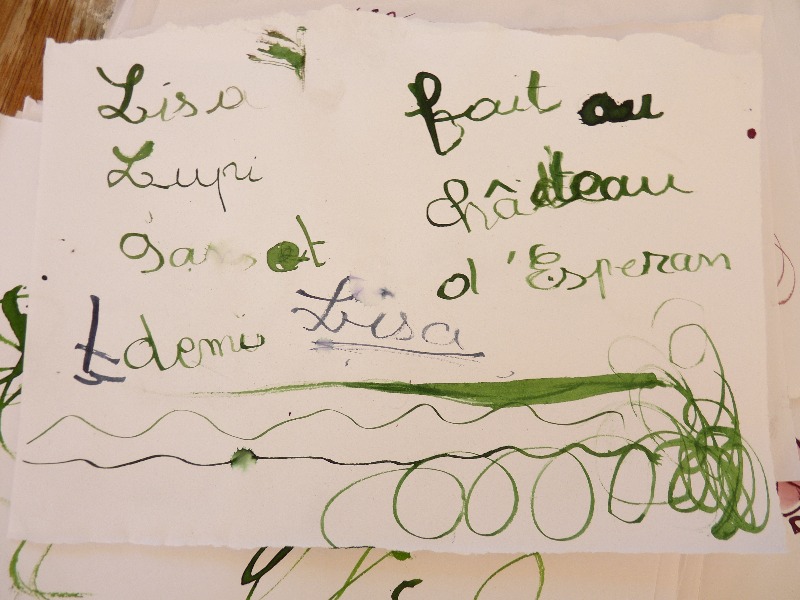 Lisa
Lupi
7 ans et
demi
Lisa
fait au
château
d'Esperan